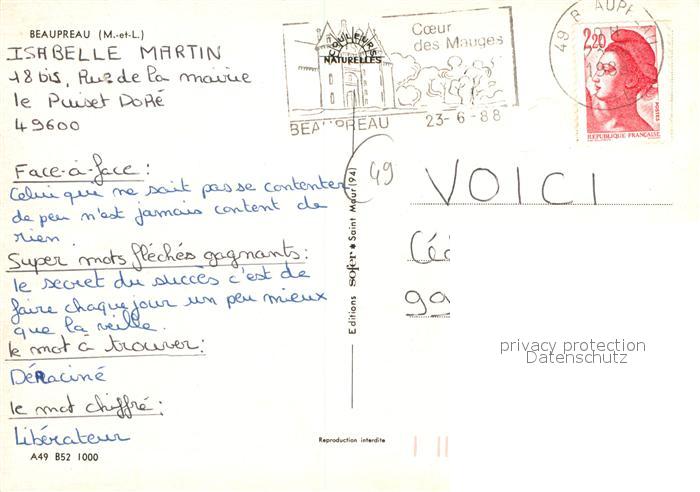 BEAUPREAU (M.-et-L.)
ISABELLE MARTIN
18 bis, Rue de la mairie
le Puiset DORÉ
49600
Face-à-face :
Celui qui ne sait pas se contenter
de peu n'est jamais content de
rien.
Super mots fléchés gagnants :
le secret du succès c'est de
faire chaque jour un peu mieux
que la veille.
le mot à trouver :
Déraciné
le mot chiffré :
Libérateur
A49 B52 1000
COULEURS
NATURELLES
Cœur
des Mauges
BEAUPREAU 23-6-88
49 B AUPR
2,20
POSTES
REPUBLIQUE FRANÇAISE
Editions sofer ★ Saint Maur (94)
49
VOICI
privacy protection
Datenschutz
Reproduction interdite